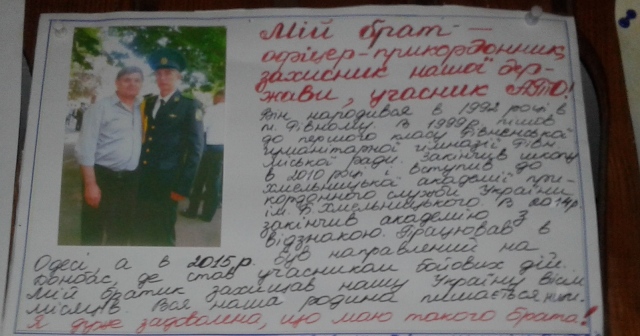 Мій брат —
офіцер-прикордонник,
захисник нашої дер-
жави, учасник АТО!
Він народився в 1992 році в
м. Рівному. В 1999р. пішов
до першого класу Рівненської
гуманітарної гімназії Рівн
міської ради. Закінчив школу
в 2010 році і вступив до
Хмельницької академії при-
кордонної служби України
ім. Б. Хмельницького. В 2014р.
закінчив академію з
відзнакою. Працював в
Одесі, а в 2015р. був направлений на
Донбас, де став учасником бойових дій.
Мій братик захищав нашу Україну вісім
місяців. Вся наша родина пишається ним.
Я дуже задоволена, що маю такого брата!